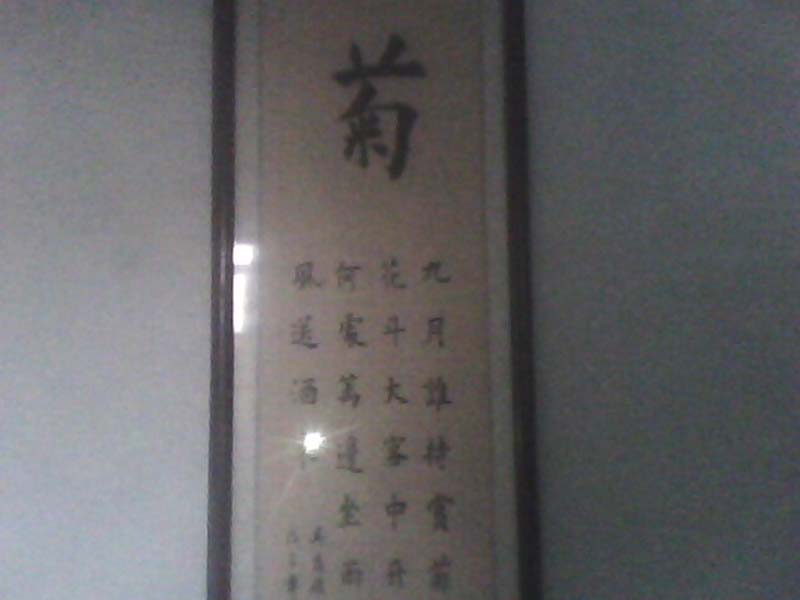 菊
九月誰持賞菊
花斗大客中開
何處籬邊坐西
風送酒